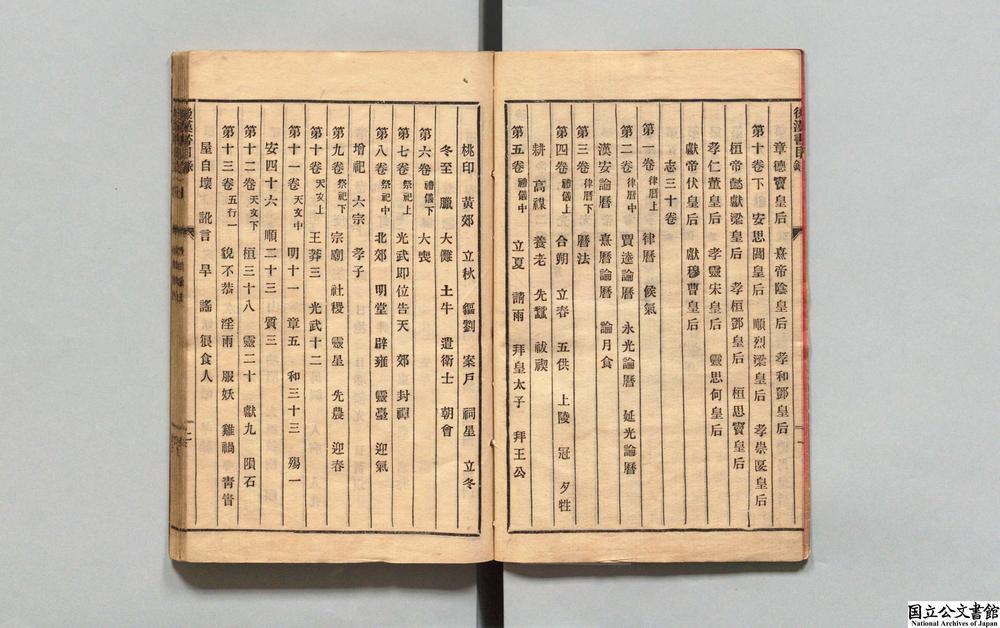 後漢書目錄
章德竇皇后 熹帝陰皇后 孝和鄧皇后
第十卷下 安思閻皇后 順烈梁皇后 孝崇匽皇后
桓帝懿獻梁皇后 孝桓鄧皇后 桓思竇皇后
孝仁董皇后 孝靈宋皇后 靈思何皇后
獻帝伏皇后 獻穆曹皇后
志三十卷
第一卷 律曆上 律曆 候氣
第二卷 律曆中 賈逵論曆 永光論曆 延光論曆
漢安論曆 熹曆論曆 論月食
第三卷 律曆下 曆法
第四卷 禮儀上 合朔 立春 五供 上陵 冠 夕牲
耕 高禖 養老 先蠶 祓禊
第五卷 禮儀中 立夏 請雨 拜皇太子 拜王公
桃印 黃郊 立秋 貙劉 案戶 祠星 立冬
冬至 臘 大儺 土牛 遣衛士 朝會
第六卷 禮儀下 大喪
第七卷 祭祀上 光武即位告天 郊 封禪
第八卷 祭祀中 北郊 明堂 辟雍 靈臺 迎氣
增祀 六宗 孝子
第九卷 祭祀下 宗廟 社稷 靈星 先農 迎春
第十卷 天文上 王莽三 光武十二
第十一卷 天文中 明十一 章五 和三十三 殤一
安四十六 順二十三 質三
第十二卷 天文下 桓三十八 靈二十 獻九 隕石
第十三卷 五行一 貌不恭 淫雨 服妖 雞禍 青眚
屋自壞 訛言 旱 謠 狼食人
後漢書目錄
二
国立公文書館
National Archives of Japan